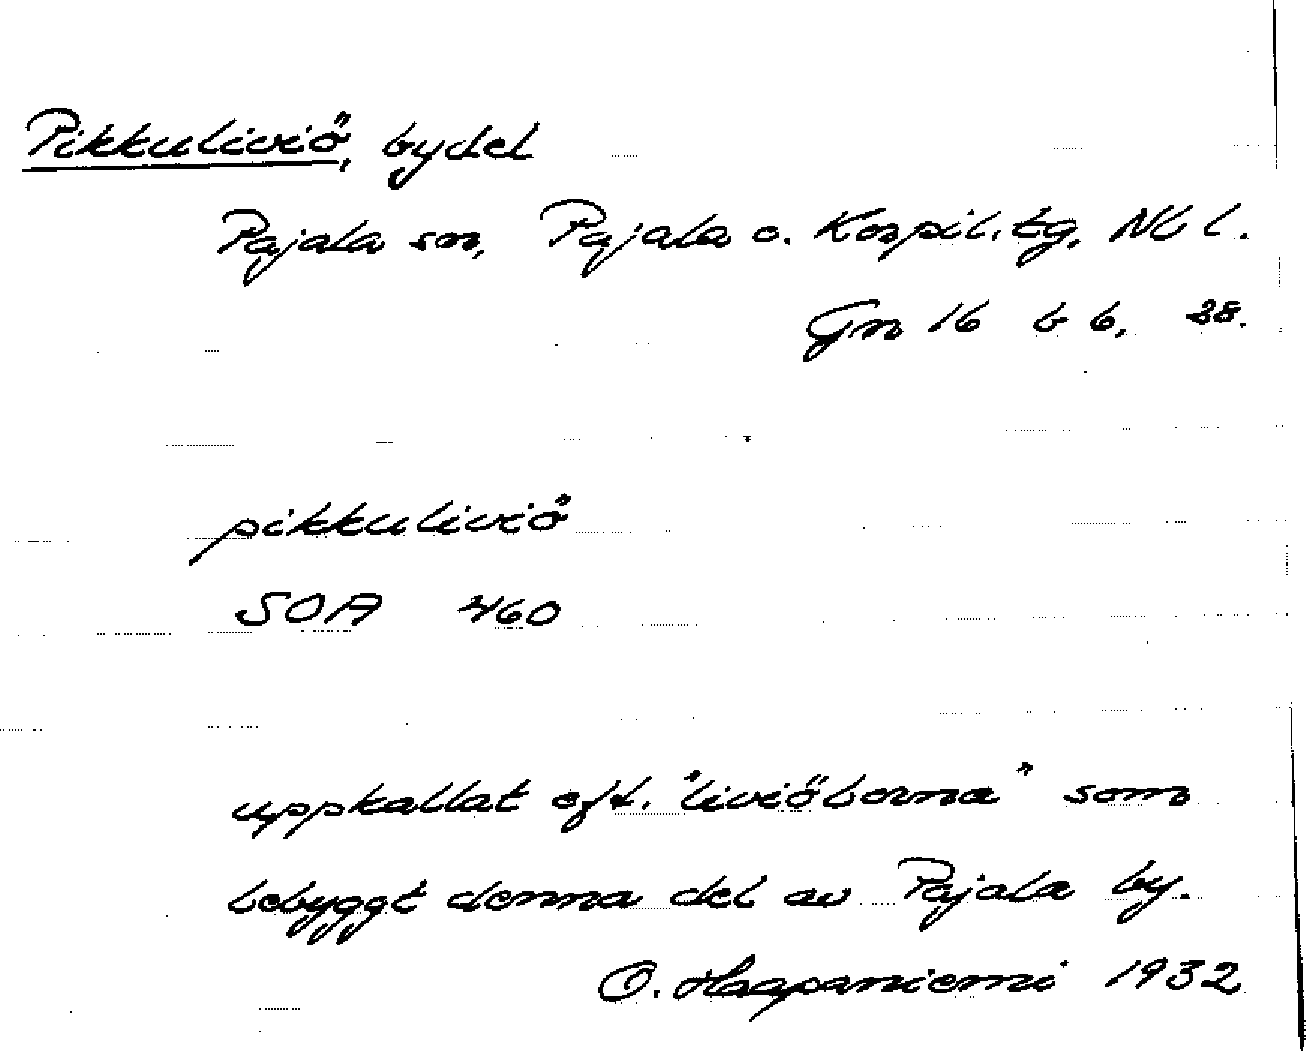 Pikkuliviö, bydel
Pajala sn, Pajala o. Korpil. tg, Nb l.
Gn 16 b 6, 28.
pikkuliviö
SOA 460
uppkallat eft. "liviöborna" som
bebyggt denna del av Pajala by.
O. Haapaniemi 1932